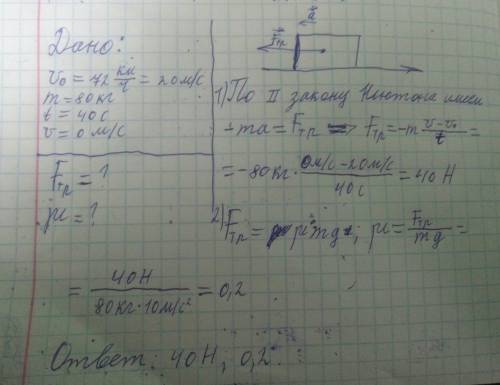 Дано:
v₀ = 72 км/ч = 20 м/с
m = 80 кг
t = 40 с
v = 0 м/с
Fтр = ?
μ = ?
a
Fтр
1) По II закону Ньютона имеем
-ma = Fтр => Fтр = -m (v - v₀)/t =
= -80кг · (0м/с - 20м/с)/40с = 40 Н
2) Fтр = μmg; μ = Fтр/mg =
= 40Н/(80кг·10м/с²) = 0,2
Ответ: 40Н; 0,2.